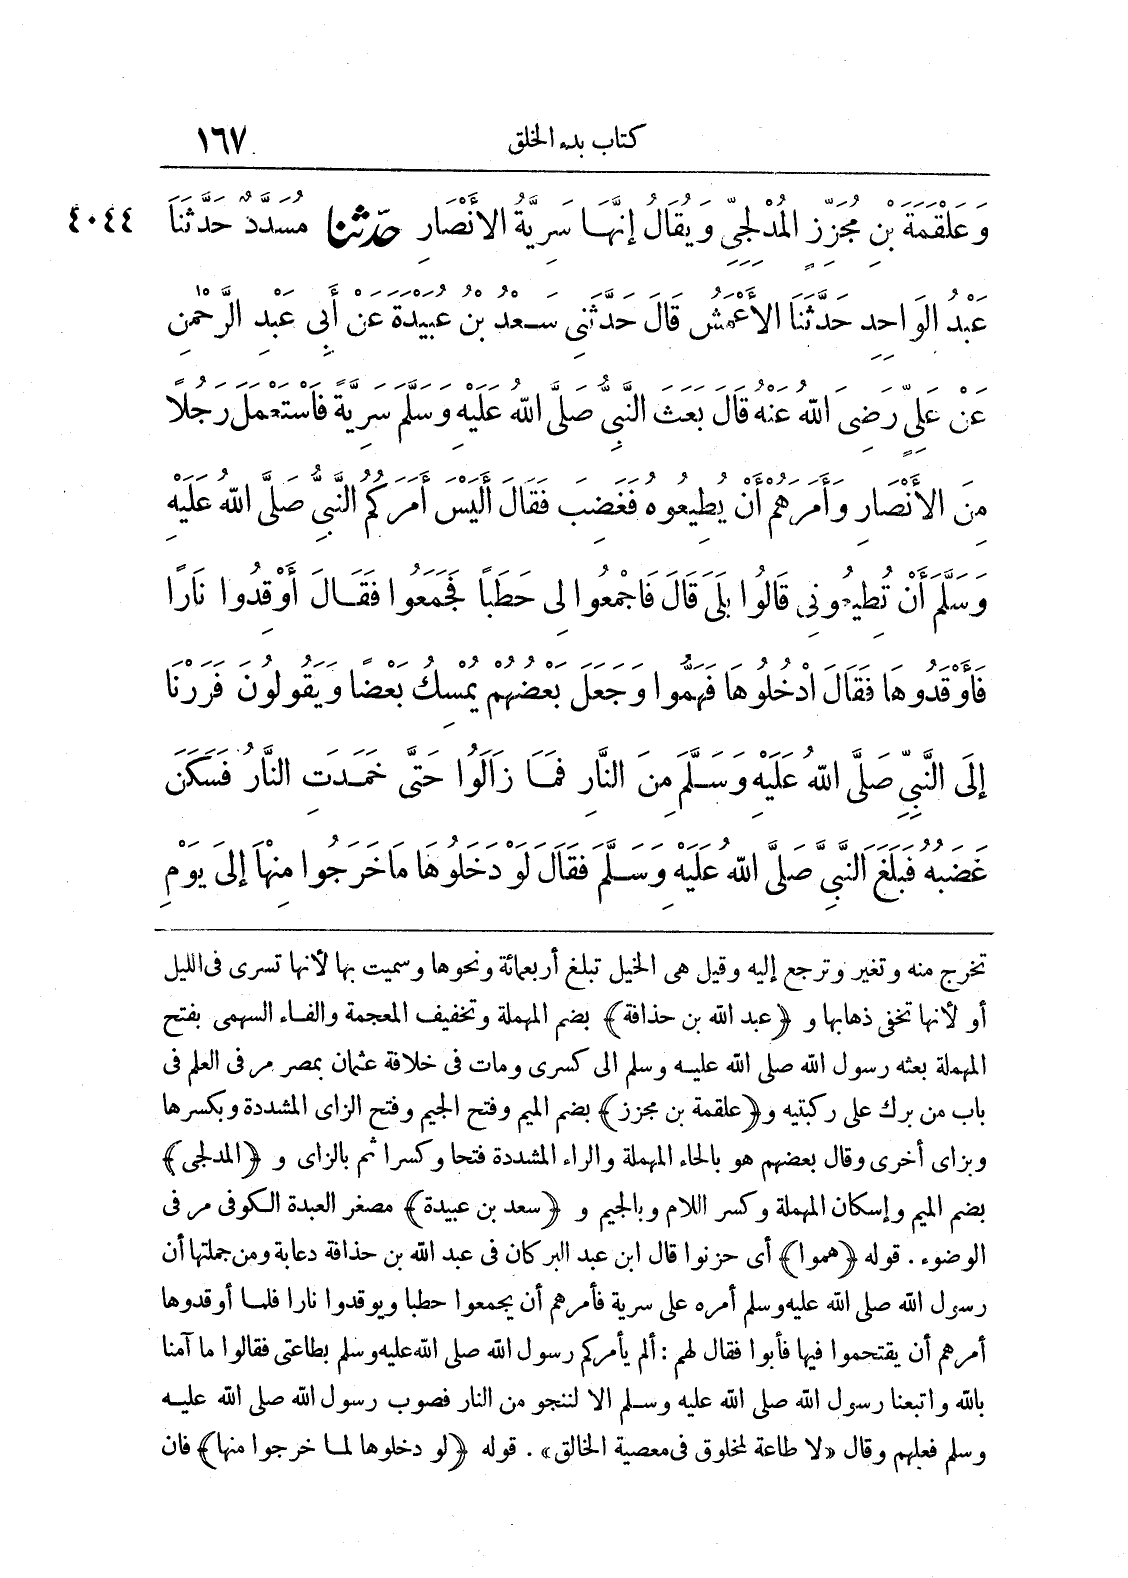 كتاب بدء الخلق ١٦٧
وَعَلْقَمَةَ بْنِ مُجَزِّزٍ المُدْلِجِيِّ وَيُقَالُ إِنَّهَا سَرِيَّةُ الأَنْصَارِ حَدَّثَنَا مُسَدَّدٌ حَدَّثَنَا ٤٠٤٤
عَبْدُ الوَاحِدِ حَدَّثَنَا الأَعْمَشُ قَالَ حَدَّثَنِي سَعْدُ بْنُ عُبَيْدَةَ عَنْ أَبِي عَبْدِ الرَّحْمٰنِ
عَنْ عَلِيٍّ رَضِىَ اللّٰهُ عَنْهُ قَالَ بَعَثَ النَّبِيُّ صَلَّى اللّٰهُ عَلَيْهِ وَسَلَّمَ سَرِيَّةً فَاسْتَعْمَلَ رَجُلًا
مِنَ الأَنْصَارِ وَأَمَرَهُمْ أَنْ يُطِيعُوهُ فَغَضِبَ فَقَالَ أَلَيْسَ أَمَرَكُمُ النَّبِيُّ صَلَّى اللّٰهُ عَلَيْهِ
وَسَلَّمَ أَنْ تُطِيعُونِي قَالُوا بَلَى قَالَ فَاجْمَعُوا لِي حَطَبًا فَجَمَعُوا فَقَالَ أَوْقِدُوا نَارًا
فَأَوْقَدُوهَا فَقَالَ ادْخُلُوهَا فَهَمُّوا وَجَعَلَ بَعْضُهُمْ يُمْسِكُ بَعْضًا وَيَقُولُونَ فَرَرْنَا
إِلَى النَّبِيِّ صَلَّى اللّٰهُ عَلَيْهِ وَسَلَّمَ مِنَ النَّارِ فَمَا زَالُوا حَتَّى خَمَدَتِ النَّارُ فَسَكَنَ
غَضَبُهُ فَبَلَغَ النَّبِيَّ صَلَّى اللّٰهُ عَلَيْهِ وَسَلَّمَ فَقَالَ لَوْ دَخَلُوهَا مَا خَرَجُوا مِنْهَا إِلَى يَوْمِ
تخرج منه وتغير وترجع إليه وقيل هى الخيل تبلغ أربعمائة ونحوها وسميت بها لأنها تسرى فى الليل
أو لأنها تخفى ذهابها و ﴿عبد الله بن حذافة﴾ بضم المهملة وتخفيف المعجمة والفاء السهمى بفتح
المهملة بعثه رسول الله صلى الله عليه وسلم الى كسرى ومات فى خلافة عثمان بمصر مر فى العلم فى
باب من برك على ركبتيه و﴿علقمة بن مجزز﴾ بضم الميم وفتح الجيم وفتح الزاى المشددة وبكسرها
وبزاى أخرى وقال بعضهم هو بالحاء المهملة والراء المشددة فتحا وكسرا ثم بالزاى و ﴿المدلجى﴾
بضم الميم وإسكان المهملة وكسر اللام وبالجيم و ﴿سعد بن عبيدة﴾ مصغر العبدة الكوفى مر فى
الوضوء . قوله ﴿هموا﴾ أى حزنوا قال ابن عبد البر كان فى عبد الله بن حذافة دعابة ومن جملتها أن
رسول الله صلى الله عليه وسلم أمره على سرية فأمرهم أن يجمعوا حطبا ويوقدوا نارا فلما أوقدوها
أمرهم أن يقتحموا فيها فأبوا فقال لهم : ألم يأمركم رسول الله صلى الله عليه وسلم بطاعتى فقالوا ما آمنا
بالله واتبعنا رسول الله صلى الله عليه وسلم الا لننجو من النار فصوب رسول الله صلى الله عليه
وسلم فعلهم وقال «لا طاعة لمخلوق فى معصية الخالق» . قوله ﴿لو دخلوها لما خرجوا منها﴾ فان